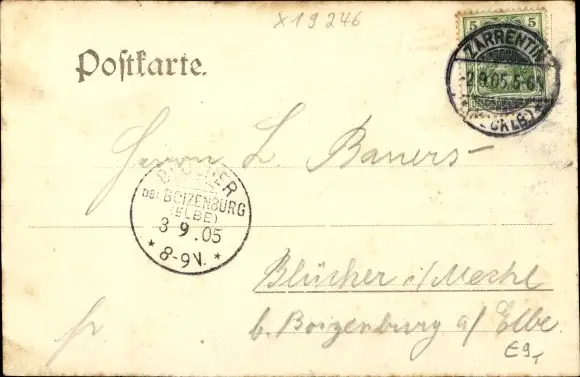 X19246
5 5
Postkarte.
ZARRENTIN
-2.9.05.5-6N
*(MECKLB)*
Herrn L. Baners
BLÜCHER
bei BOIZENBURG
(ELBE)
3 9 . 05
* 8-9V. *
Blücher i/Meckl
b. Boizenburg a/ Elbe.
fr
E9